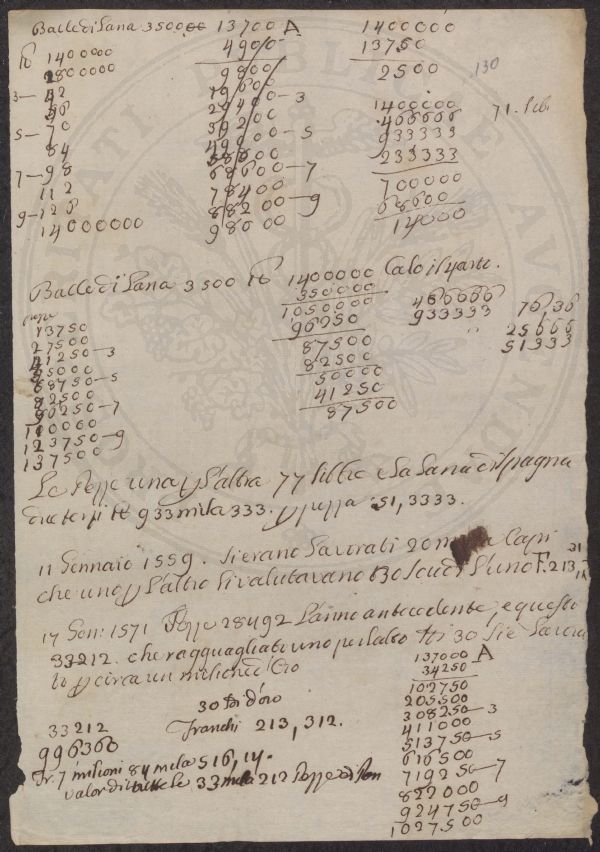 Balle di Lana 35000 13700 A 1400000
℔ 1400000 4900 13750
2800000 9800 2500 130
3—42 19600 1400000 71. lib.
56 29400—3 466666
5—70 39200 933333
84 49000—5 233333
7—98 58800 700000
112 68600—7 68600
9—126 78400 14000
14000000 88200—9
98000
Balle di Lana 3500 ℔ 1400000 Calo il quarto.
350000 466666 76,36
1050000 933333 25666
96250 51333
87500
82500
50000
41250
87500
pezze
13750
27500
41250—3
55000
68750—5
82500
96250—7
110000
123750—9
137500
Le Pezze una p l'altra 77 libbre e la Lana di Spagna
due terzi ℔ 933 mila 333. p pezza 51,3333.
11 Gennaio 1559. Si erano Lavorati 20 mila Capi
che uno p l'altro si valutavano 30 scudi l'uno F. 213,
17 Genn: 1571 Pezze 28492 l'anno antecedente, e questo
33212. che ragguagliato uno per l'altro 30 si è Lavora
to p circa un milione d'Oro
30 d'oro
Franchi 213, 312.
33212
996360
Fr. 7 milioni 84 mila 516, 14.
valor di tutte le 33 mila 212 Pezze di
137000 A
34250
102750
205500
308250—3
411000
513750—5
616500
719250—7
822000
924750—9
1027500